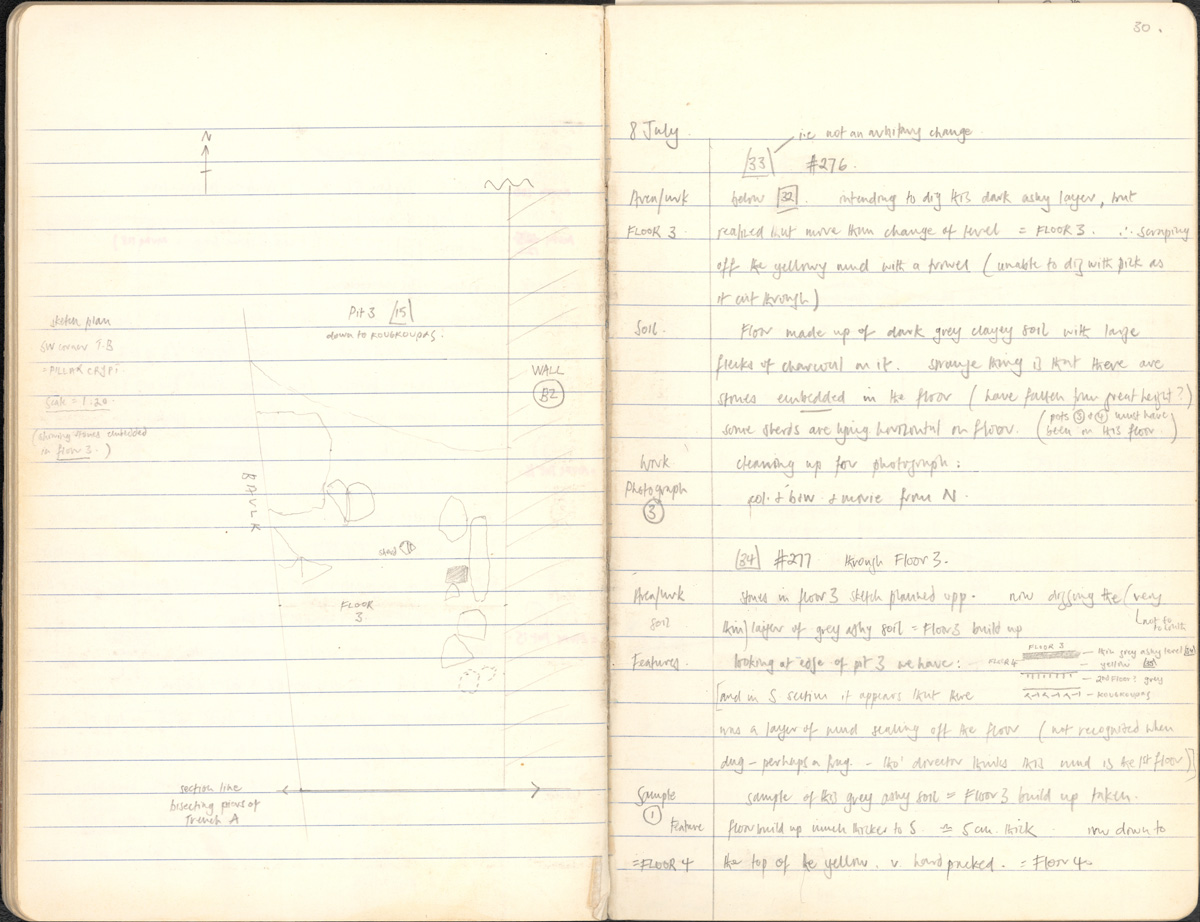 N
Pit 3 [15]
down to KOUGKOURAS.
sketch plan
SW corner T.B
= PILLAR CRYPT.
Scale = 1.20
(showing stones embedded
in floor 3.)
WALL
B2
BAULK
sherd
FLOOR
3.
section line
bisecting pivots of
Trench A
30.
8 July.
i.e. not an arbitrary change
[33] #276.
Area/work below [32]. intending to dig this dark ashy layer, but
FLOOR 3. realized that more than change of level = FLOOR 3. ∴ scraping
off the yellowy mud with a trowel (unable to dig with pick as
it cut through)
Soil. Floor made up of dark grey clayey soil with large
flecks of charcoal on it. strange thing is that there are
stones embedded in the floor (have fallen from great height?)
some sherds are lying horizontal on floor. (pots ③ & ④ must have
been on this floor)
Work cleaning up for photograph:
Photograph col. & b&w. & movie from N.
③
[34] #277 through Floor 3.
Area/work stones in floor 3 sketch planned opp. now digging the (very
soil thin) layer of grey ashy soil = Floor 3 build up
Features. looking at edge of pit 3 we have:
FLOOR 3
FLOOR 4
— thin grey ashy level [34]
— yellow
— 2nd Floor? grey
— KOUGKOURAS
[and in S section it appears that there
was a layer of mud sealing off the floor (not recognized when
dug - perhaps a fing. - tho' director thinks this mud is the 1st floor)]
Sample sample of this grey ashy soil = Floor 3 build up taken.
①
Feature floor build up much thicker to S. ≏ 5 cm. thick. now down to
= FLOOR 4 the top of the yellow. v. hard packed. = Floor 4.